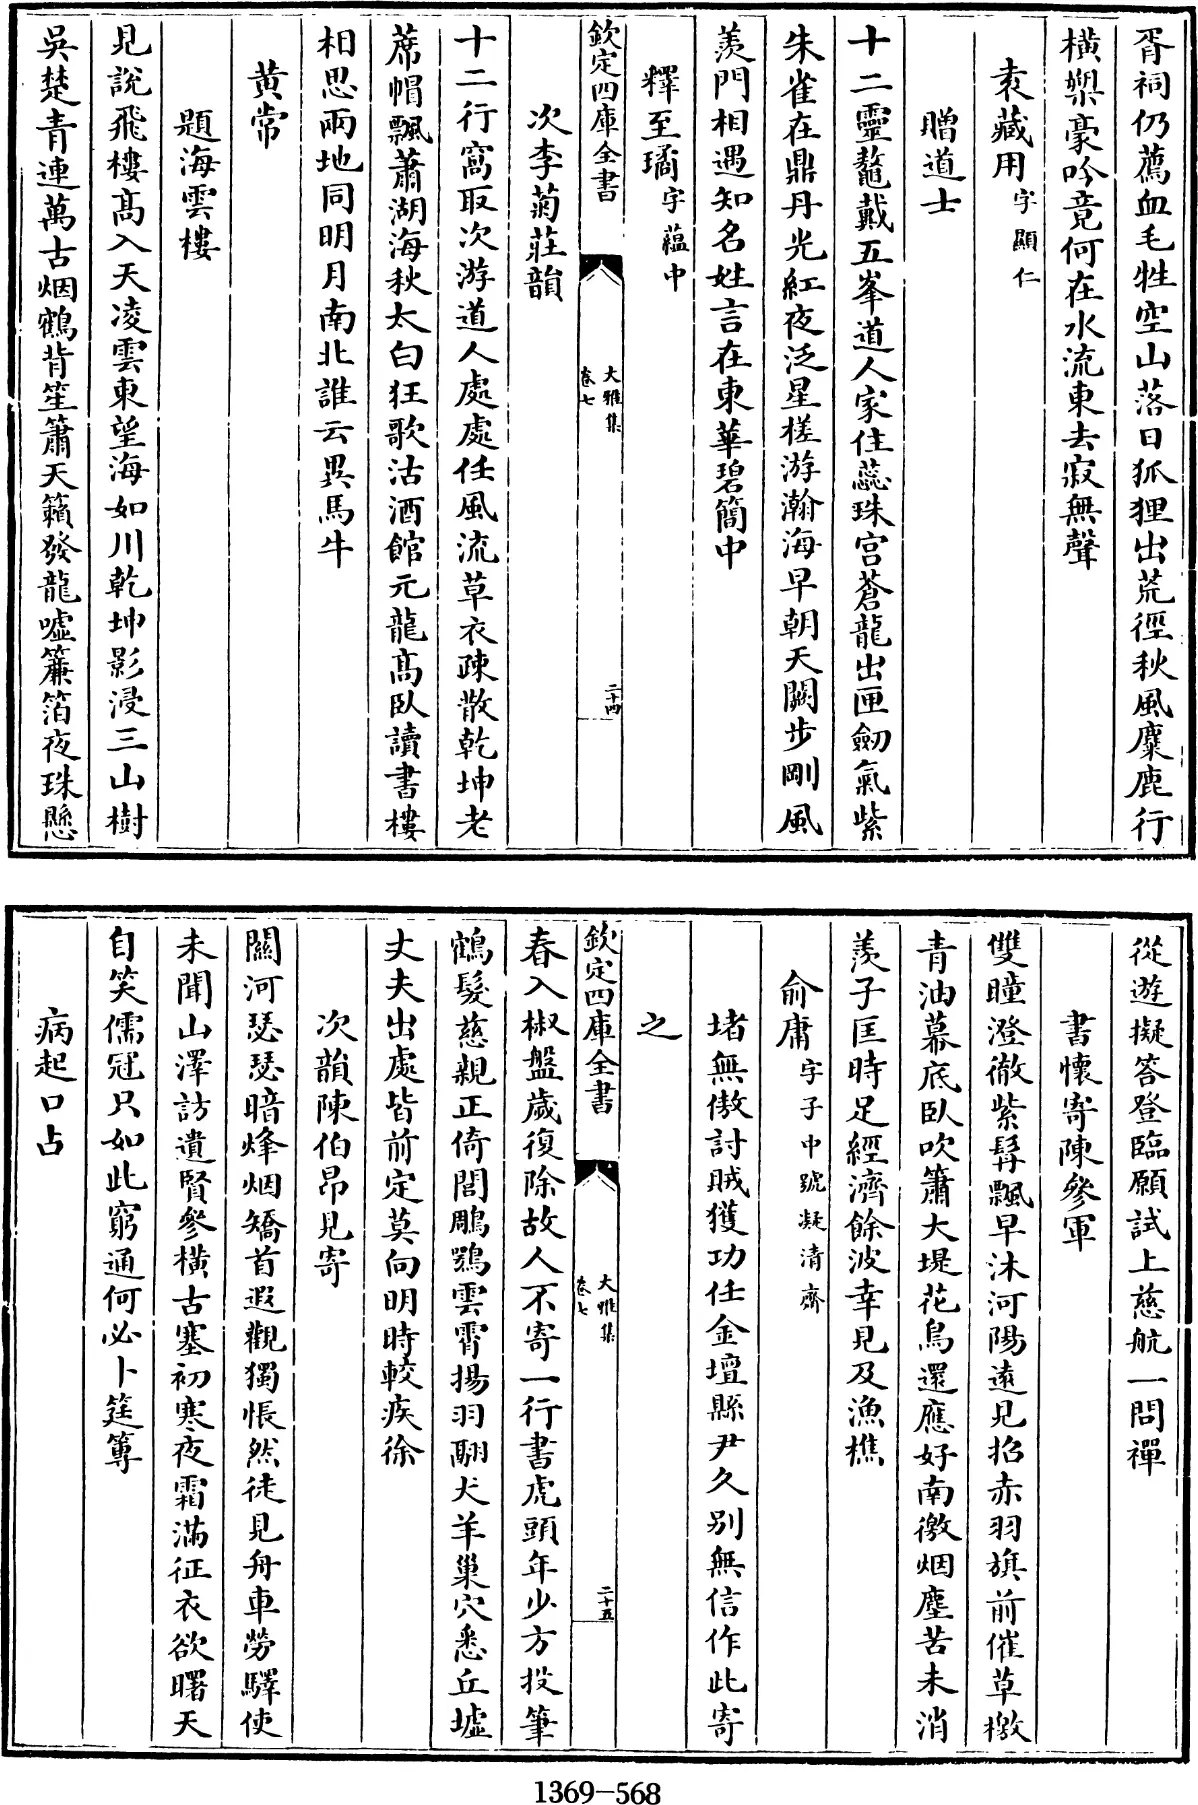 胥祠仍薦血毛牲空山落日狐狸出荒徑秋風麋鹿行
橫槊豪吟竟何在水流東去寂無聲
袁藏用字顯仁
贈道士
十二靈鼇戴五峯道人家住蘂珠宫蒼龍出匣劒氣紫
朱雀在鼎丹光紅夜泛星槎游瀚海早朝天闕步剛風
羨門相遇知名姓言在東華碧簡中
釋至璚字藴中
欽定四庫全書
大雅集
卷七
二十四
次李菊莊韻
十二行窩取次游道人處處任風流草衣疎散乾坤老
蓆帽飄蕭湖海秋太白狂歌沽酒館元龍髙臥讀書樓
相思兩地同明月南北誰云異馬牛
黄常
題海雲樓
見説飛樓髙入天凌雲東望海如川乾坤影浸三山樹
吳楚青連萬古烟鶴背笙簫天籟發龍噓簾箔夜珠懸
從遊擬答登臨願試上慈航一問禪
書懷寄陳參軍
雙瞳澄徹紫髯飄早沐河陽遠見招赤羽旗前催草檄
青油幕底臥吹簫大堤花鳥還應好南徼烟塵苦未消
羨子匡時足經濟餘波幸見及漁樵
俞庸字子中號凝清齋
堵無傲討賊獲功任金壇縣尹久别無信作此寄
之
欽定四庫全書
大雅集
卷七
二十五
春入椒盤歲復除故人不寄一行書虎頭年少方投筆
鶴髮慈親正倚閭鵰鶚雲霄揚羽翮犬羊巢穴悉丘墟
丈夫出處皆前定莫向明時較疾徐
次韻陳伯昂見寄
關河瑟瑟暗烽烟矯首遐觀獨悵然徒見舟車勞驛使
未聞山澤訪遺賢參橫古塞初寒夜霜滿征衣欲曙天
自笑儒冠只如此窮通何必卜筳篿
病起口占
1369-568